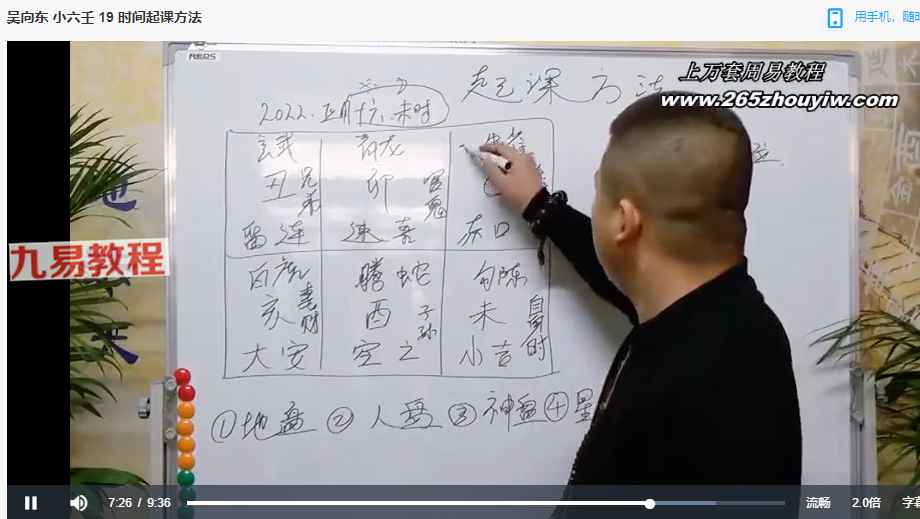 吴向东 小六壬 19 时间起课方法
用手机，随时
上万套周易教程
www.265zhouyiw.com
起课方法
2022.正月十六.未时
玄武 青龙 朱雀
丑 兄弟 卯 官鬼
留连 速喜 赤口
白虎 螣蛇 勾陈
亥 妻财 酉 子孙 未 自身 时
大安 空亡 小吉
①地盘 ②人盘 ③神盘 ④星
九易教程
7:26 / 9:36
流畅
2.0倍
字幕